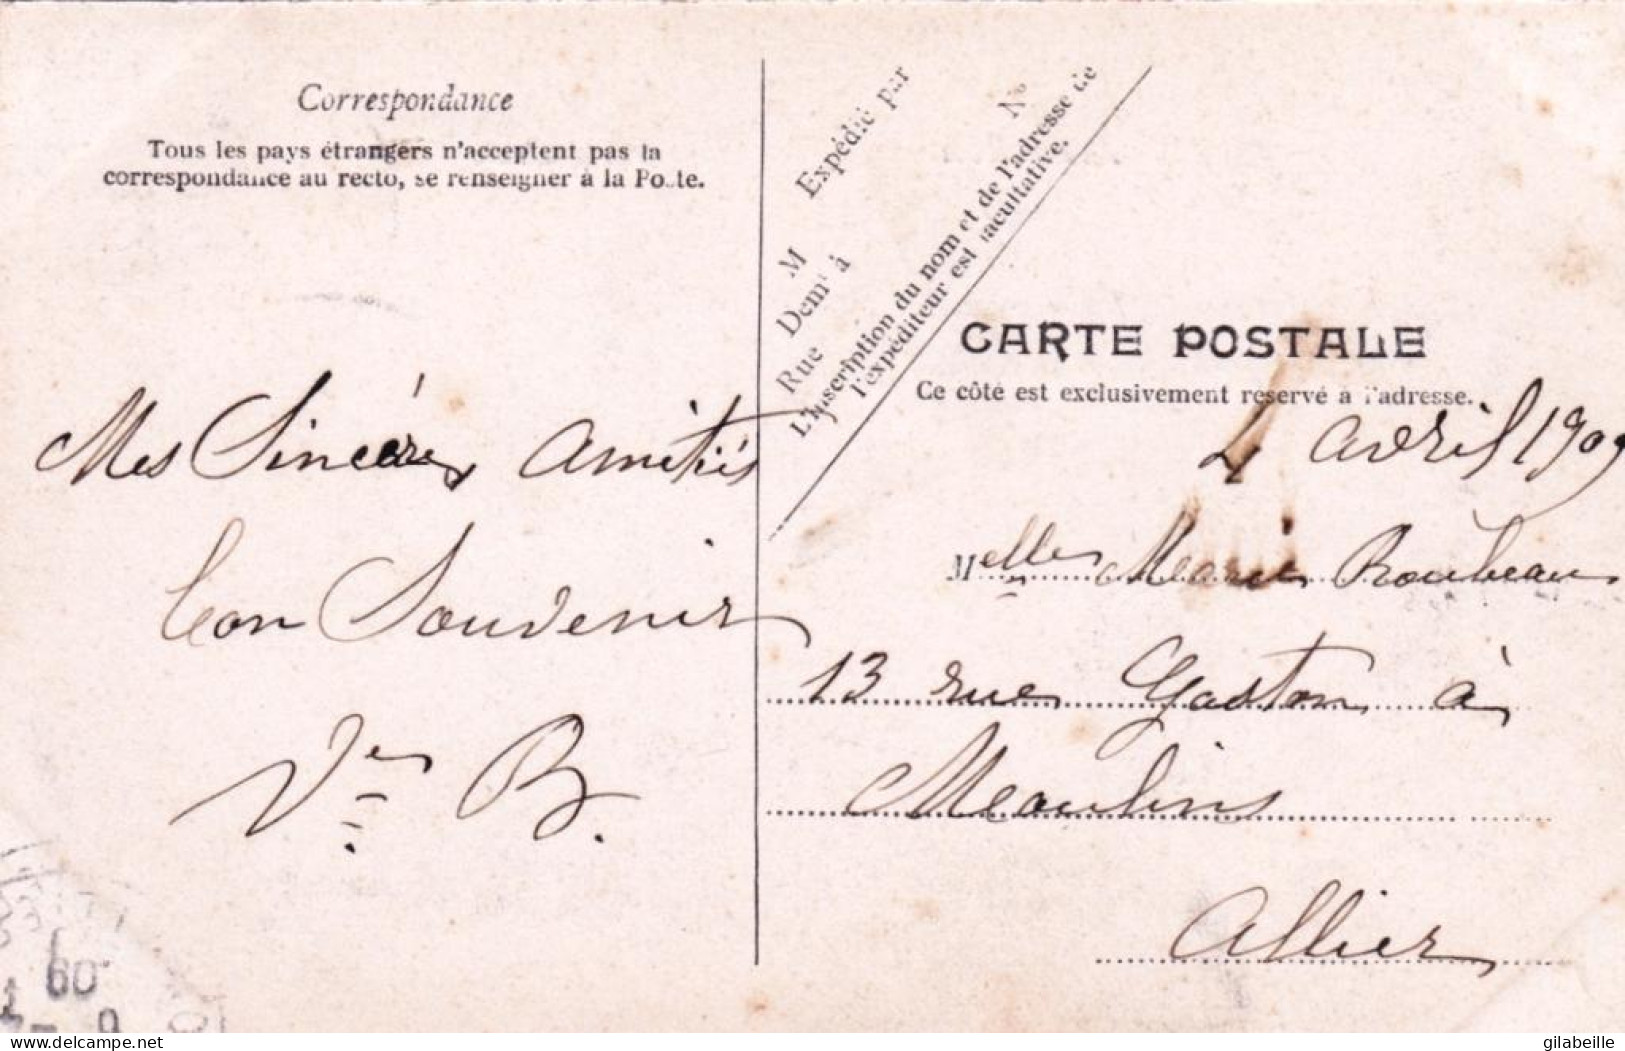 Correspondance
Tous les pays étrangers n'acceptent pas la
correspondance au recto, se renseigner à la Poste.
Mes Sincères amitiés
bon Souvenir
Vve B.
Expédié par
M
N°
Demt à
Rue
L'inscription du nom et de l'adresse de
l'expéditeur est facultative.
CARTE POSTALE
Ce côté est exclusivement reservé à l'adresse.
4 avril 1909
Melle Marie Roubeau
13 rue Gaston à
Moulins
Allier
09
delcampe.net
gilabeille